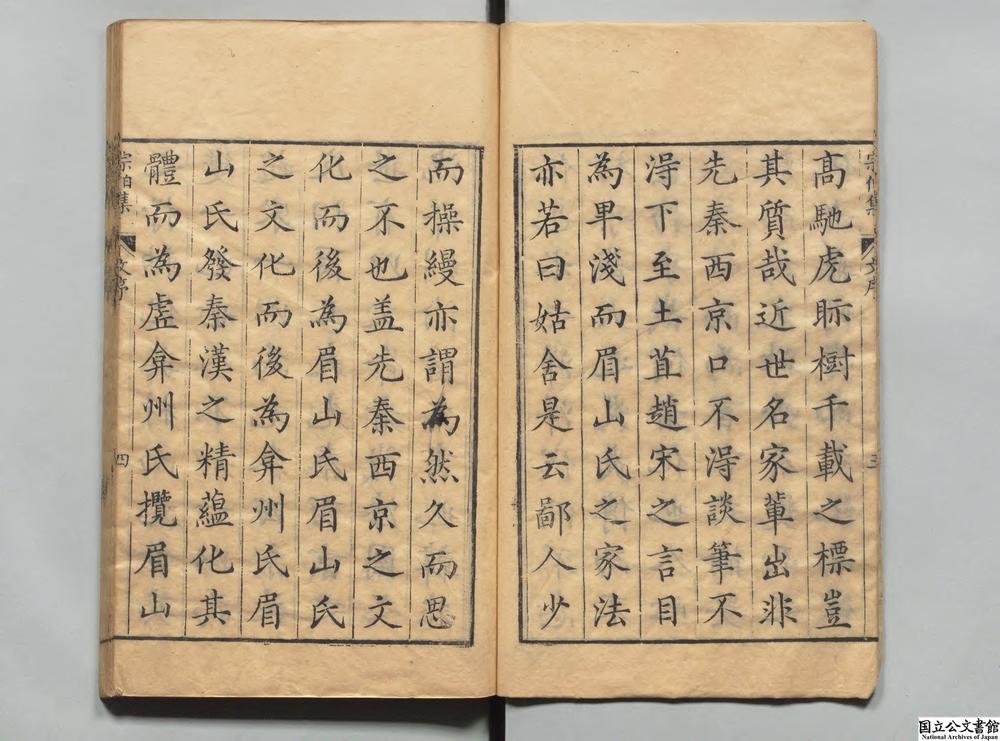 高馳虎眎樹千載之標豈
其質哉近世名家軰出非
先秦西京口不淂談筆不
淂下至土苴趙宋之言目
為卑淺而眉山氏之家法
亦若曰姑舍是云鄙人少
而操縵亦謂為然久而思
之不也盖先秦西京之文
化而後為眉山氏眉山氏
之文化而後為弇州氏眉
山氏發秦漢之精蘊化其
體而為虛弇州氏攬眉山
宗伯集 文序 四
国立公文書館
National Archives of Japan